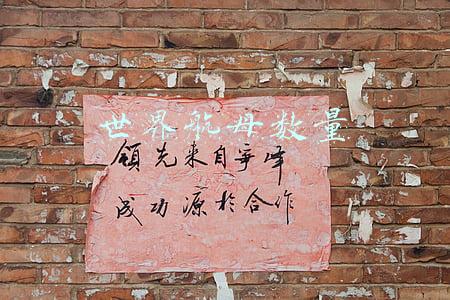 世界航母数量
領先来自争峰
成功源於合作